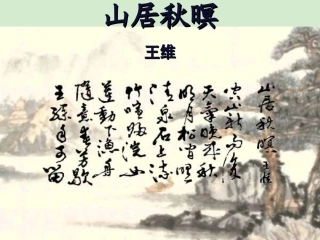 山居秋暝
王维
山居秋暝 王维
空山新雨後
天氣晚来秋
明月松间照
清泉石上流
竹喧歸浣女
蓮動下漁舟
隨意春芳歇
王孫自可留